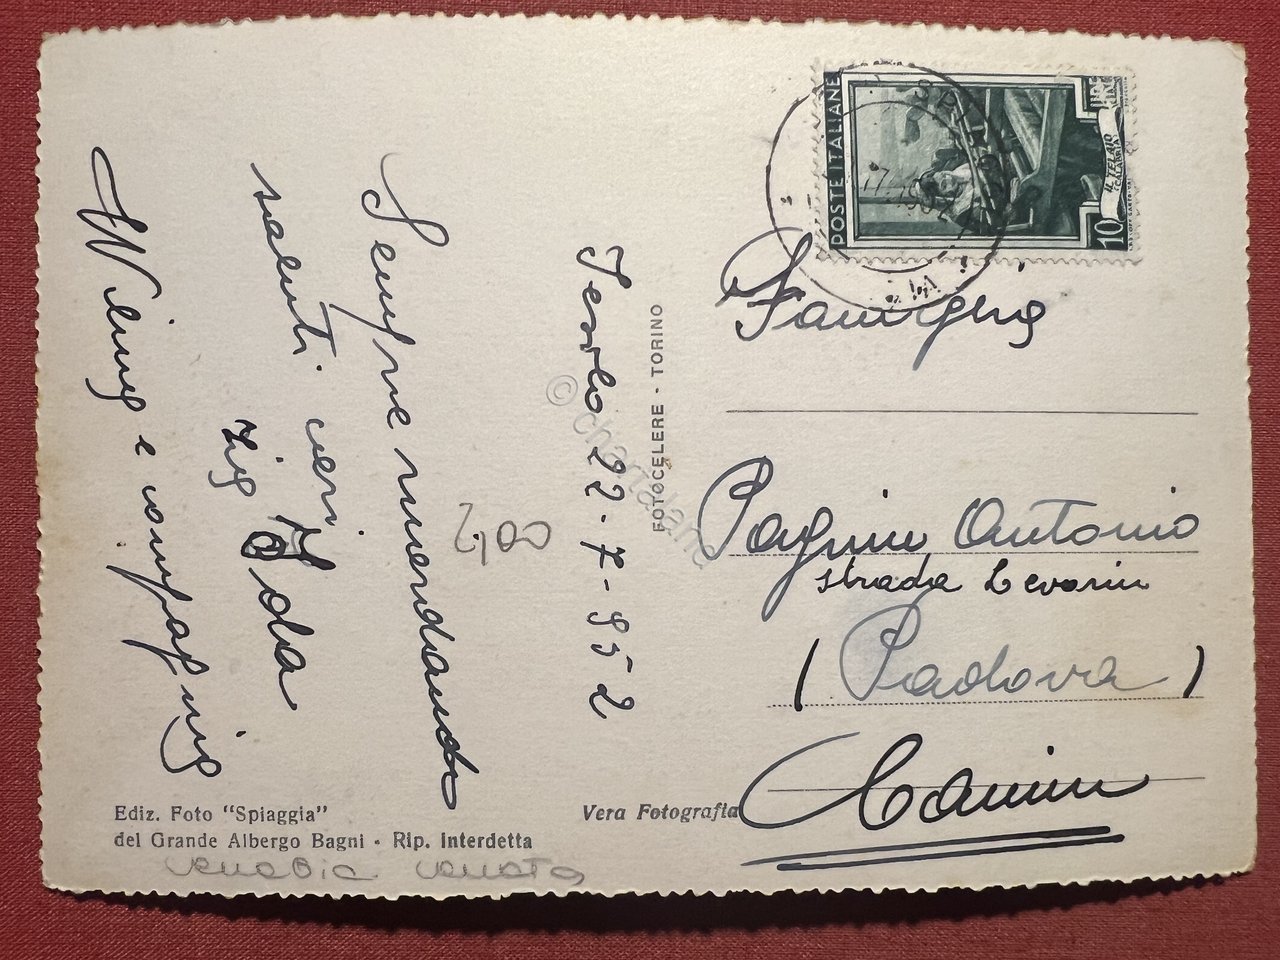 Jesolo 22-7-952
Sempre ricordando
saluti cari
zia Ida
Wilma e compagnia
2,00
FOTOCELERE - TORINO
© chartaland
POSTE ITALIANE
LIRE
IL TELAIO
(CALABRIA)
10
Famiglia
Pagnin Antonio
strada Levorin
(Padova)
Camin
Ediz. Foto "Spiaggia"
del Grande Albergo Bagni - Rip. Interdetta
Vera Fotografia